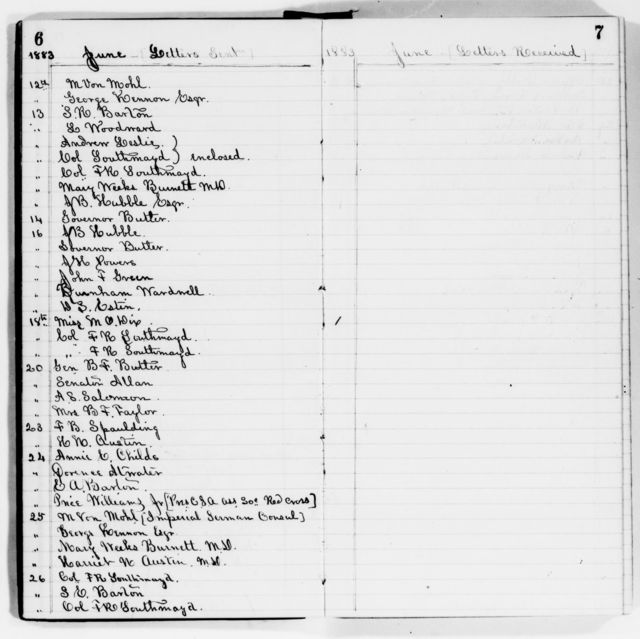 6
1883 June (Letters Sent)
12th M Von Mohl.
" George Kennon Esqr.
13 S. R. Barton
" L Woodward
" Andrew Leslie }
" Col Southmayd } enclosed.
" Col F R Southmayd.
" Mary Weeks Burnett M.D.
" J B. Hubble Esqr.
14 Governor Butler.
16 J B Hubble.
" Governor Butler.
" J H Powers
" John F Green
" Burnham Wardwell
" Estin.
18th Miss M O Dix
" Col F R Southmayd.
" " F R Southmayd
20 Gen B. F. Butler
" Senator Allan
" A S. Salomson
" Mrs B F. Taylor.
23 F B. Spaulding
" H N. Austin
24 Annie E. Childs
" Dorence Atwater
" E A Barton
" Price Williams, Jr [Pres C S A ass So. Red Cross]
25 M Von Mohl [Imperial German Consul]
" George Kennon Esqr
" Mary Weeks Burnett M.D.
" Harriet N Austin M.D.
26 Col F R Southmayd.
" S. E. Barton
" Col F R Southmayd.
7
1883 June (Letters Received)